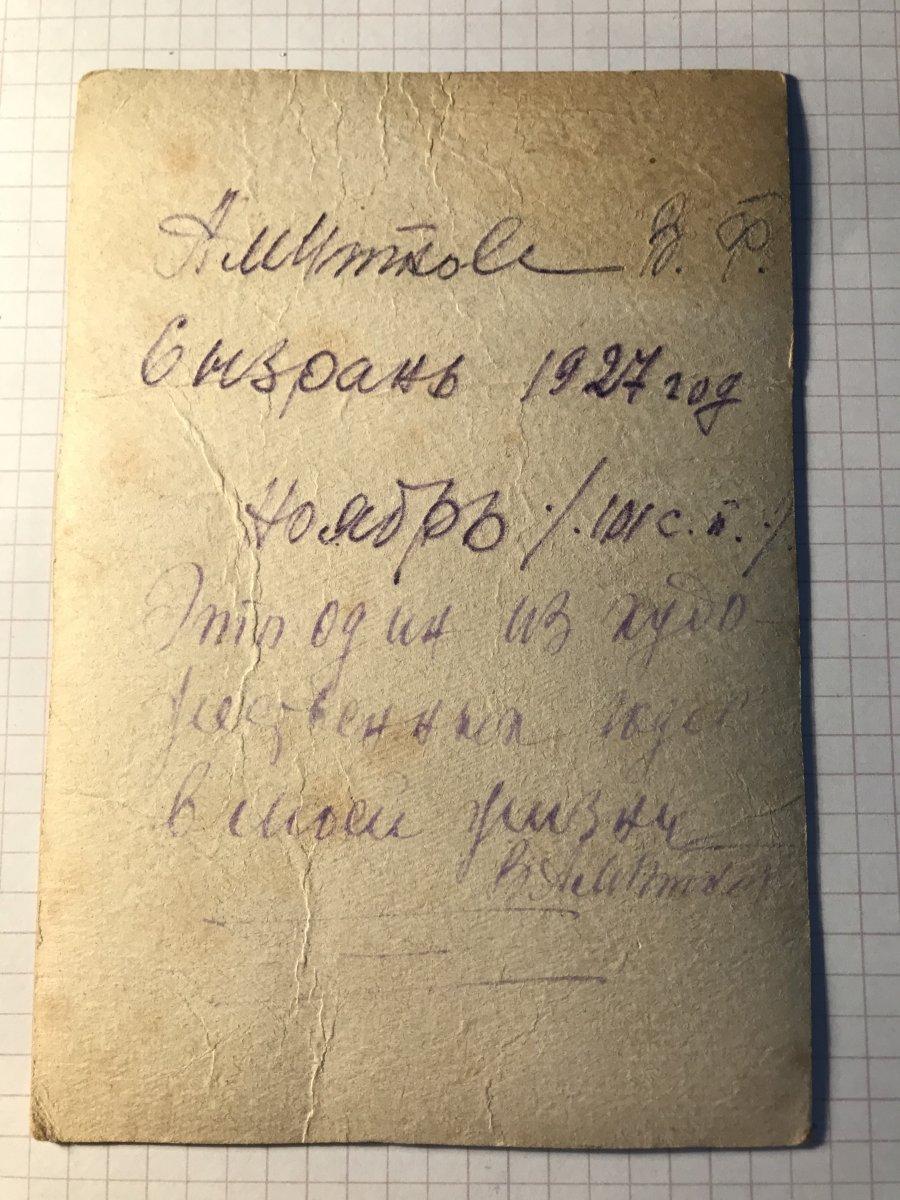 Амитков В. Ф.
Сызрань 1927 год
ноябрь ./. 101 с. п. ./.
Это один из худо-
жественных годов
в моей жизни
В. Амитков